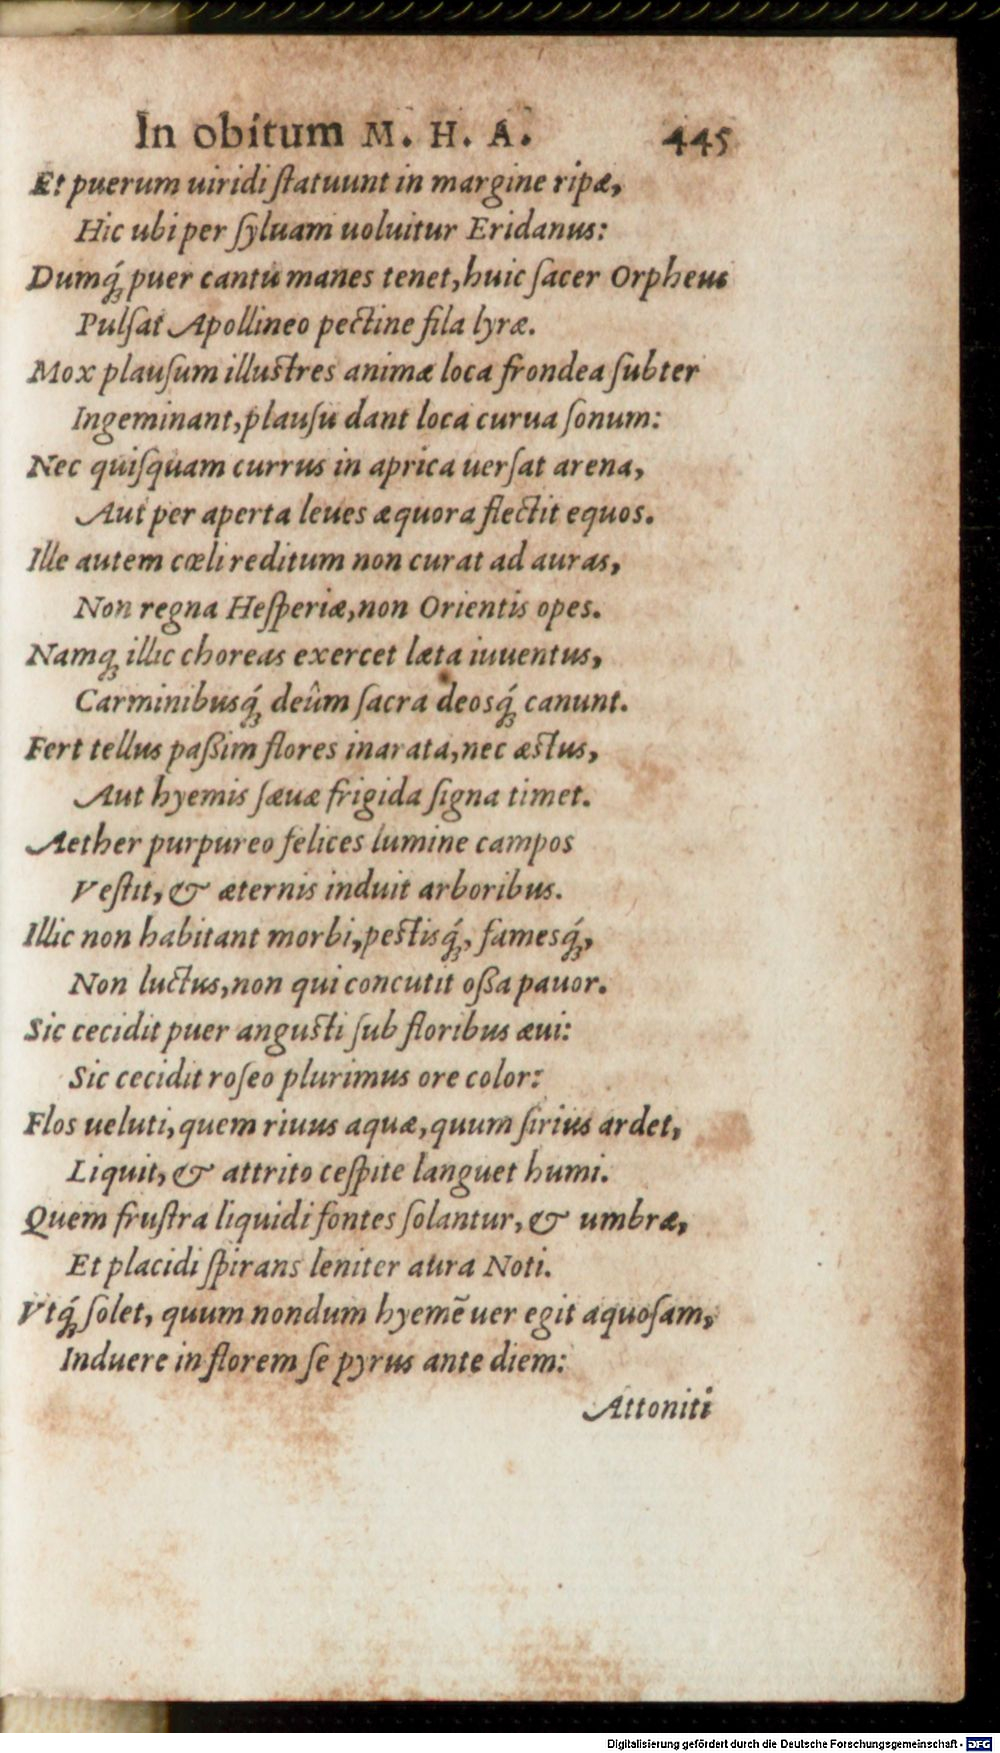 In obitum M. H. A. 445
Et puerum uiridi ſtatuunt in margine ripæ,
Hic ubi per ſyluam uoluitur Eridanus:
Dumq́ꝫ puer cantu manes tenet, huic ſacer Orpheus
Pulſat Apollineo pectine fila lyræ.
Mox plauſum illuſtres animæ loca frondea ſubter
Ingeminant, plauſu dant loca curua ſonum:
Nec quiſquam currus in aprica uerſat arena,
Aut per aperta leues æquora flectit equos.
Ille autem cœli reditum non curat ad auras,
Non regna Heſperiæ, non Orientis opes.
Namqꝫ illic choreas exercet læta iuuentus,
Carminibusq́ꝫ deûm ſacra deosq́ꝫ canunt.
Fert tellus paßim flores inarata, nec æſtus,
Aut hyemis ſæuæ frigida ſigna timet.
Aether purpureo felices lumine campos
Veſtit, & æternis induit arboribus.
Illic non habitant morbi, peſtisq́ꝫ, famesq́ꝫ,
Non luctus, non qui concutit oßa pauor.
Sic cecidit puer anguſti ſub floribus æui:
Sic cecidit roſeo plurimus ore color:
Flos ueluti, quem riuus aquæ, quum ſirius ardet,
Liquit, & attrito ceſpite languet humi.
Quem fruſtra liquidi fontes ſolantur, & umbræ,
Et placidi ſpirans leniter aura Noti.
Vtq́ꝫ ſolet, quum nondum hyemē uer egit aquoſam,
Induere in florem ſe pyrus ante diem:
Attoniti
Digitalisierung gefördert durch die Deutsche Forschungsgemeinschaft - DFG